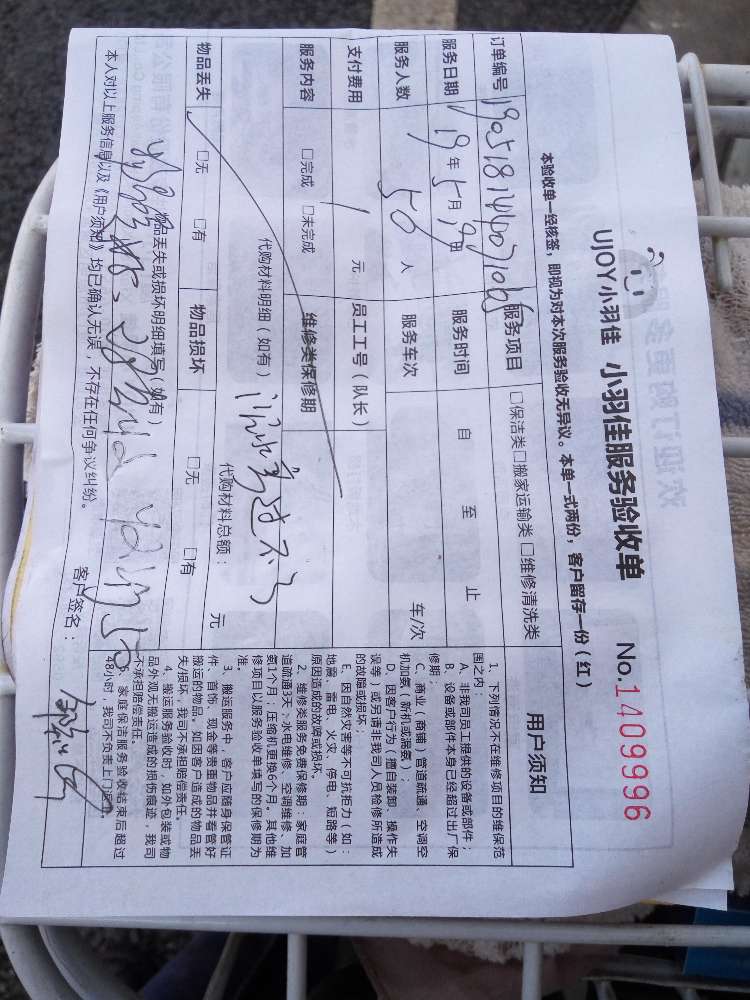 UJOY小羽佳 小羽佳服务验收单 No.1409996
本验收单一经核签，即视为对本次服务验收无异议。本单一式两份，客户留存一份（红）
订单编号 服务项目 □保洁类□搬家运输类□维修清洗类
服务日期 19年5月19日 服务时间 自 至 止
服务人数 50人 服务车次 车/次
支付费用 / 元 员工工号（队长）
服务内容 □完成 □未完成 维修类保修期
代购材料明细（如有）
代购材料总额： 元
物品丢失 □无 □有 物品损坏 □无 □有
物品丢失或损坏明细填写（如有）
本人对以上服务信息以及《用户须知》均已确认无误，不存在任何争议纠纷。
客户签名：
用户须知
1、下列情况不在维修项目的维保范
围之内：
A、非我司员工提供的设备或部件；
B、设备或部件本身已经超过出厂保
修期；
C、商业（商铺）管道疏通、空调空
机加氨（新机或漏氨）；
D、因客户行为（擅自装卸、操作失
误等）或另请非我司人员检修所造成
的故障或损坏；
E、因自然灾害等不可抗拒力（如：
地震、雷电、火灾、停电、短路等）
原因造成的故障或损坏。
2、维修类服务免费保修期：家庭管
道疏通3天；水电维修、空调维修、加
氨1个月；压缩机更换6个月。其他维
修项目以服务验收单填写的保修期为
准。
3、搬运服务中，客户应随身保管证
件、首饰、现金等贵重物品并看管好
搬运的物品。如因客户造成的物品丢
失/损坏，我司不承担赔偿责任。
4、搬运服务验收时，如外包装或物
品外观无搬运造成的损伤痕迹，我司
不承担赔偿责任。
5、家庭保洁服务验收结束后超过
48小时，我司不负责上门返工。